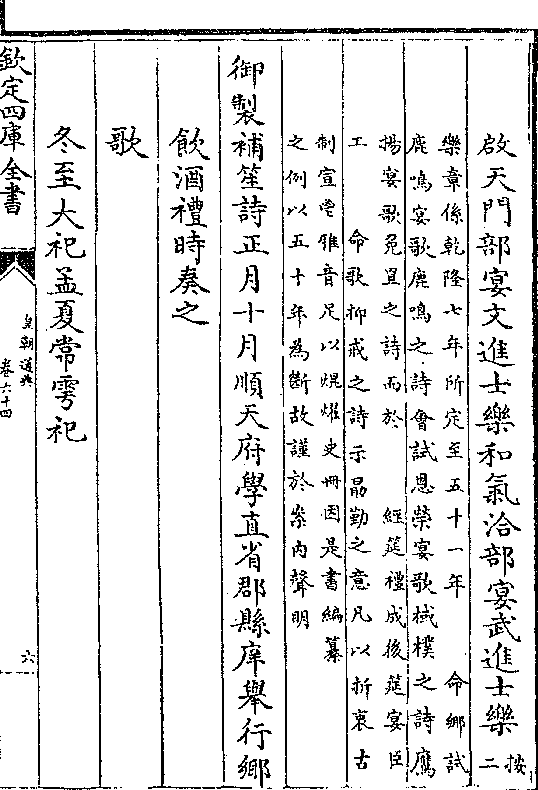 啟天門部宴文進士樂和氣洽部宴武進士樂
按
二
樂章係乾隆七年所定至五十一年　命鄉試
鹿鳴宴歌鹿鳴之詩會試恩榮宴歌棫樸之詩鷹
揚宴歌兔罝之詩而於　經筵禮成後筵宴臣
工　命歌抑戒之詩示勗勤之意凡以折衷古
制宣鬯雅音足以焜燿史冊因是書編纂
之例以五十年為斷故謹於案內聲明
御製補笙詩正月十月順天府學直省郡縣庠舉行鄉
飲酒禮時奏之
歌
冬至大祀孟夏常雩祀
欽定四庫全書
皇朝通典
卷六十四
六